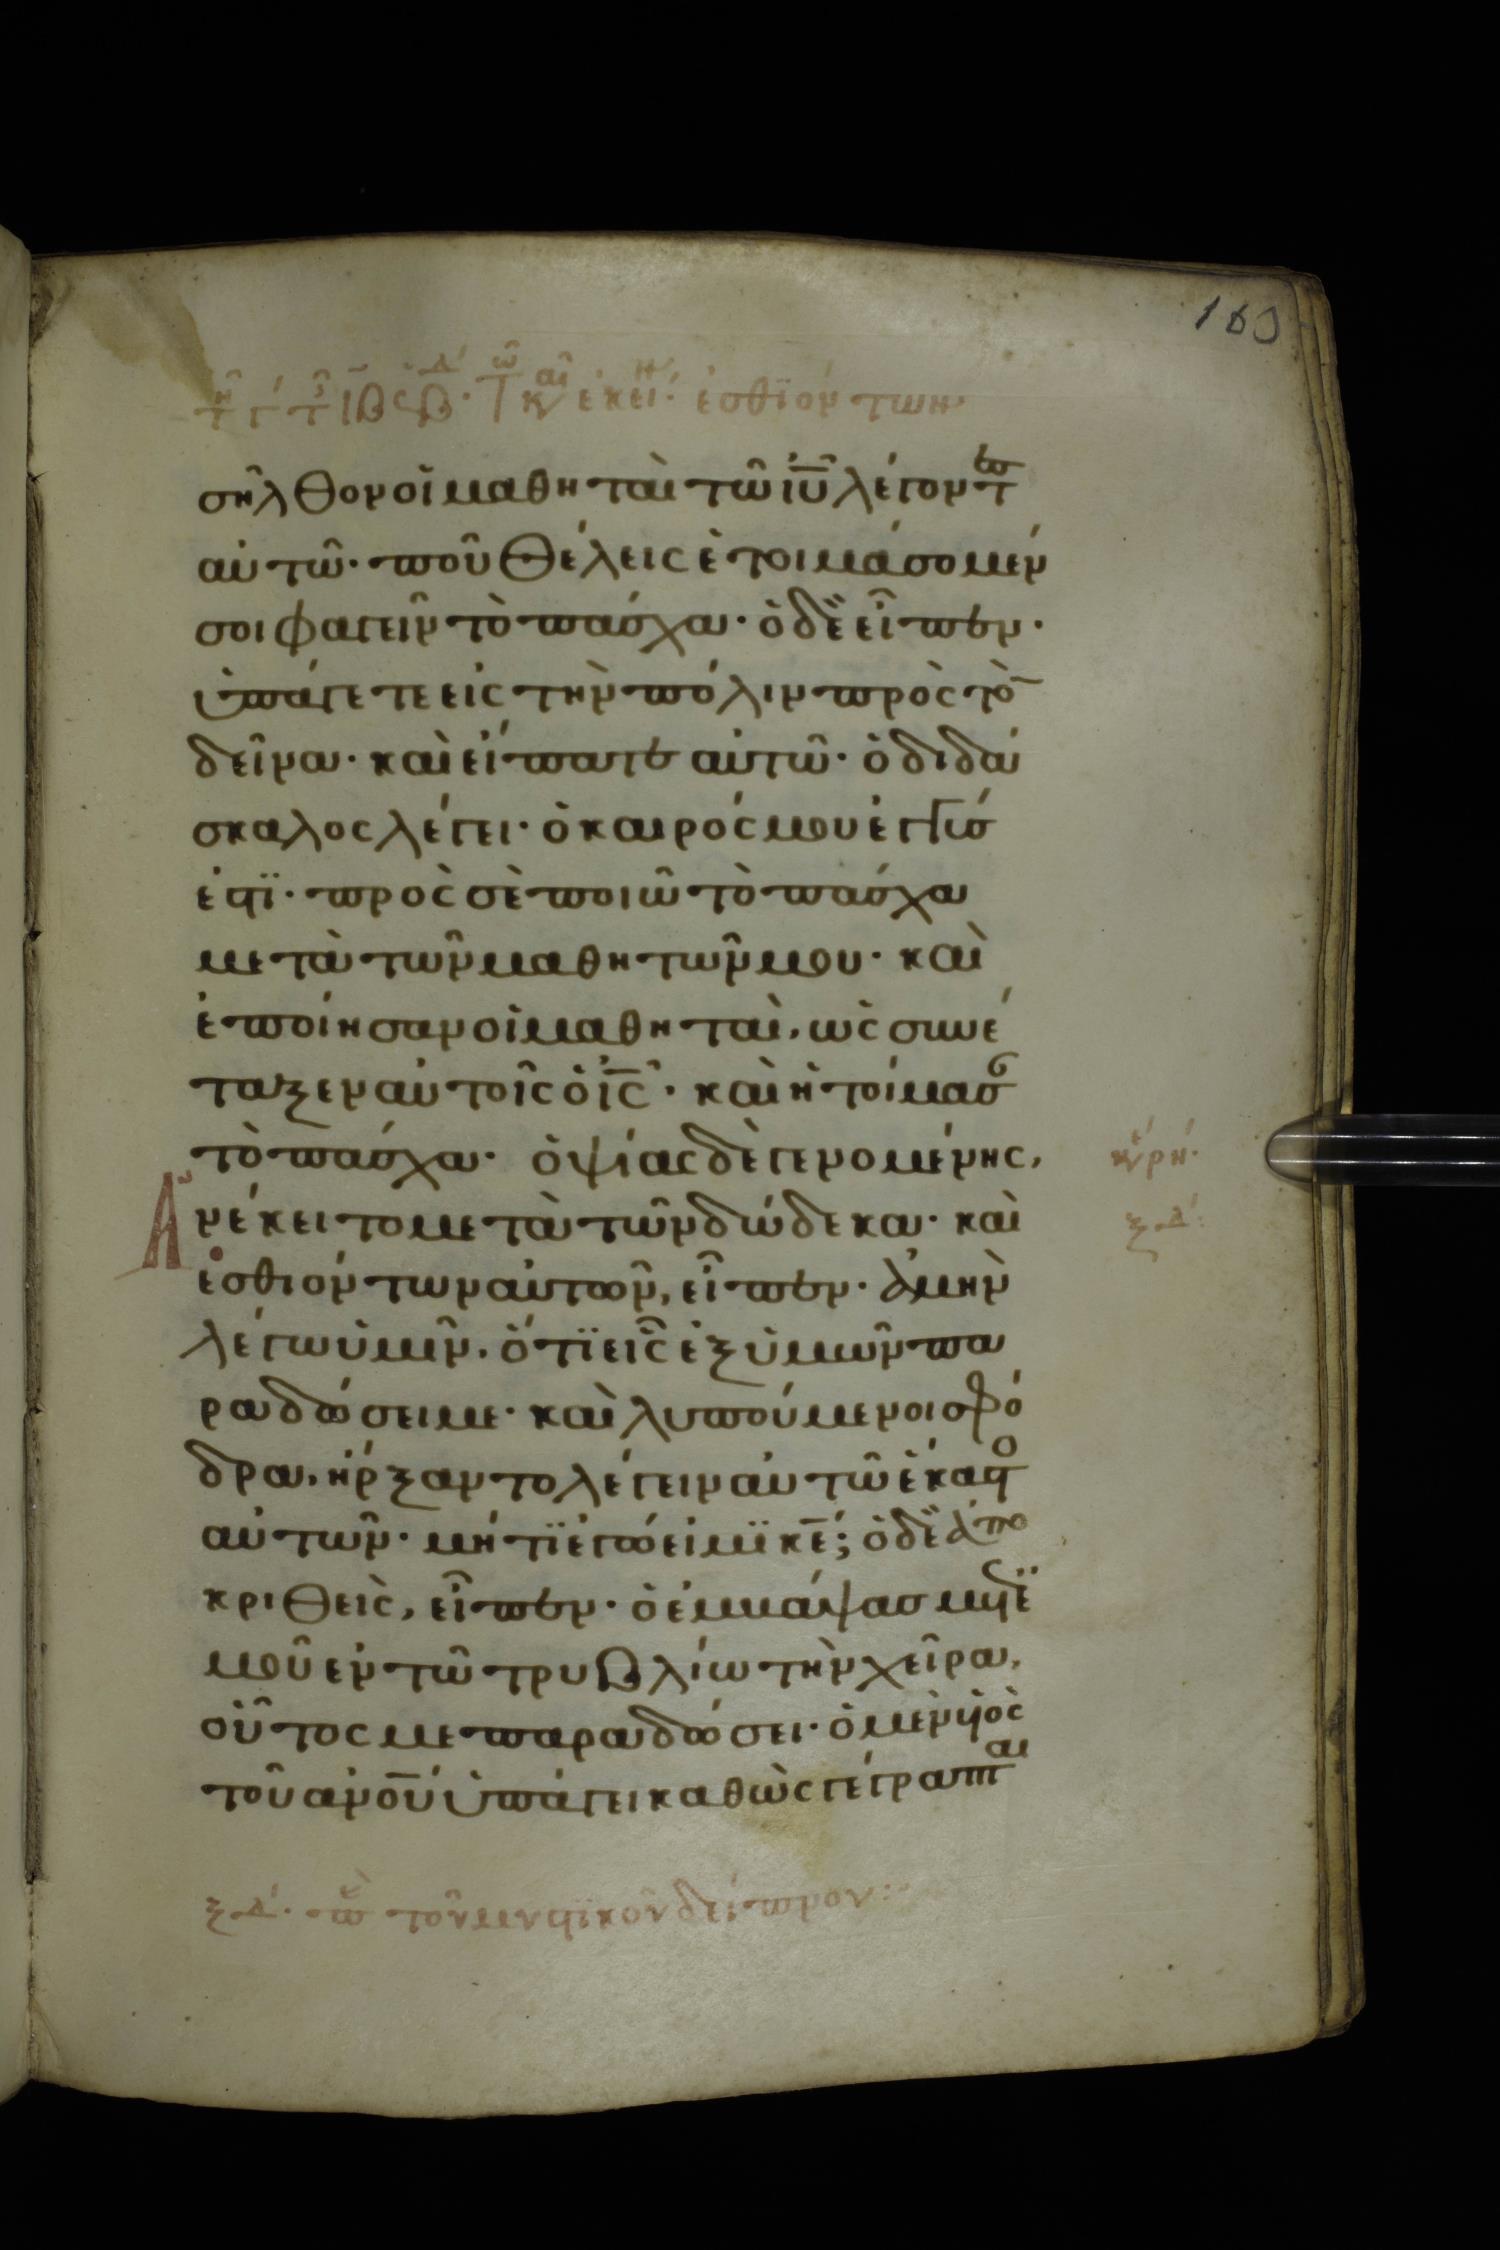 160
ἐσθϊόντων·
σῆλθον οἱ μαθηταὶ τῶ ἰῦ λέγοντες
αὐτῶ· ποῦ θέλεις ἑτοιμάσομέν
σοι φαγεῖν τὸ πάσχα· ὁ δὲ εἶπεν·
ὑπάγετε εἰς τὴν πόλιν πρὸς τὸ̄
δεῖνα· καὶ εἴπατε αὐτῶ· ὁ διδά
σκαλος λέγει· ὁ καιρός μου ἐγγύσ
ἐστϊ· πρὸς σὲ ποιῶ τὸ πάσχα
μετὰ τῶν μαθητῶν μου· καὶ
ἐποίησαν οἱ μαθηταὶ, ὡς συνέ
ταξεν αὐτοῖς ὁ ἰς̄· καὶ ἡτοίμασ
τὸ πάσχα· ὀψίας δὲ γενομένης,
ἀνέκειτο μετὰ τῶν δώδεκα· καὶ
ἐσθιόντων αὐτῶν, εἶπεν· ἀμὴν
λέγω ὑμῖν, ὅτϊ εἷς ἐξ ὑμῶν πα
ραδώσει με· καὶ λυπούμενοι σφό
δρα, ἤρξαντο λέγειν αὐτῶ ἕκαστο
αὐτῶν· μή τϊ ἐγώ εἰμϊ κε̄; ὁ δὲ ἀπο
κριθεὶς, εἶπεν· ὁ ἐμβάψασ μετ ἐ
μοῦ ἐν τῶ τρυβλίω τὴν χεῖρα,
οὗτος με παραδώσει· ὁ μὲν υἱὸς
τοῦ ἀνο̄υ ὑπάγει καθὼς γέγραπται
ξδ· π τοῦ μυστϊκοῦ δείπνου:
ξδ: